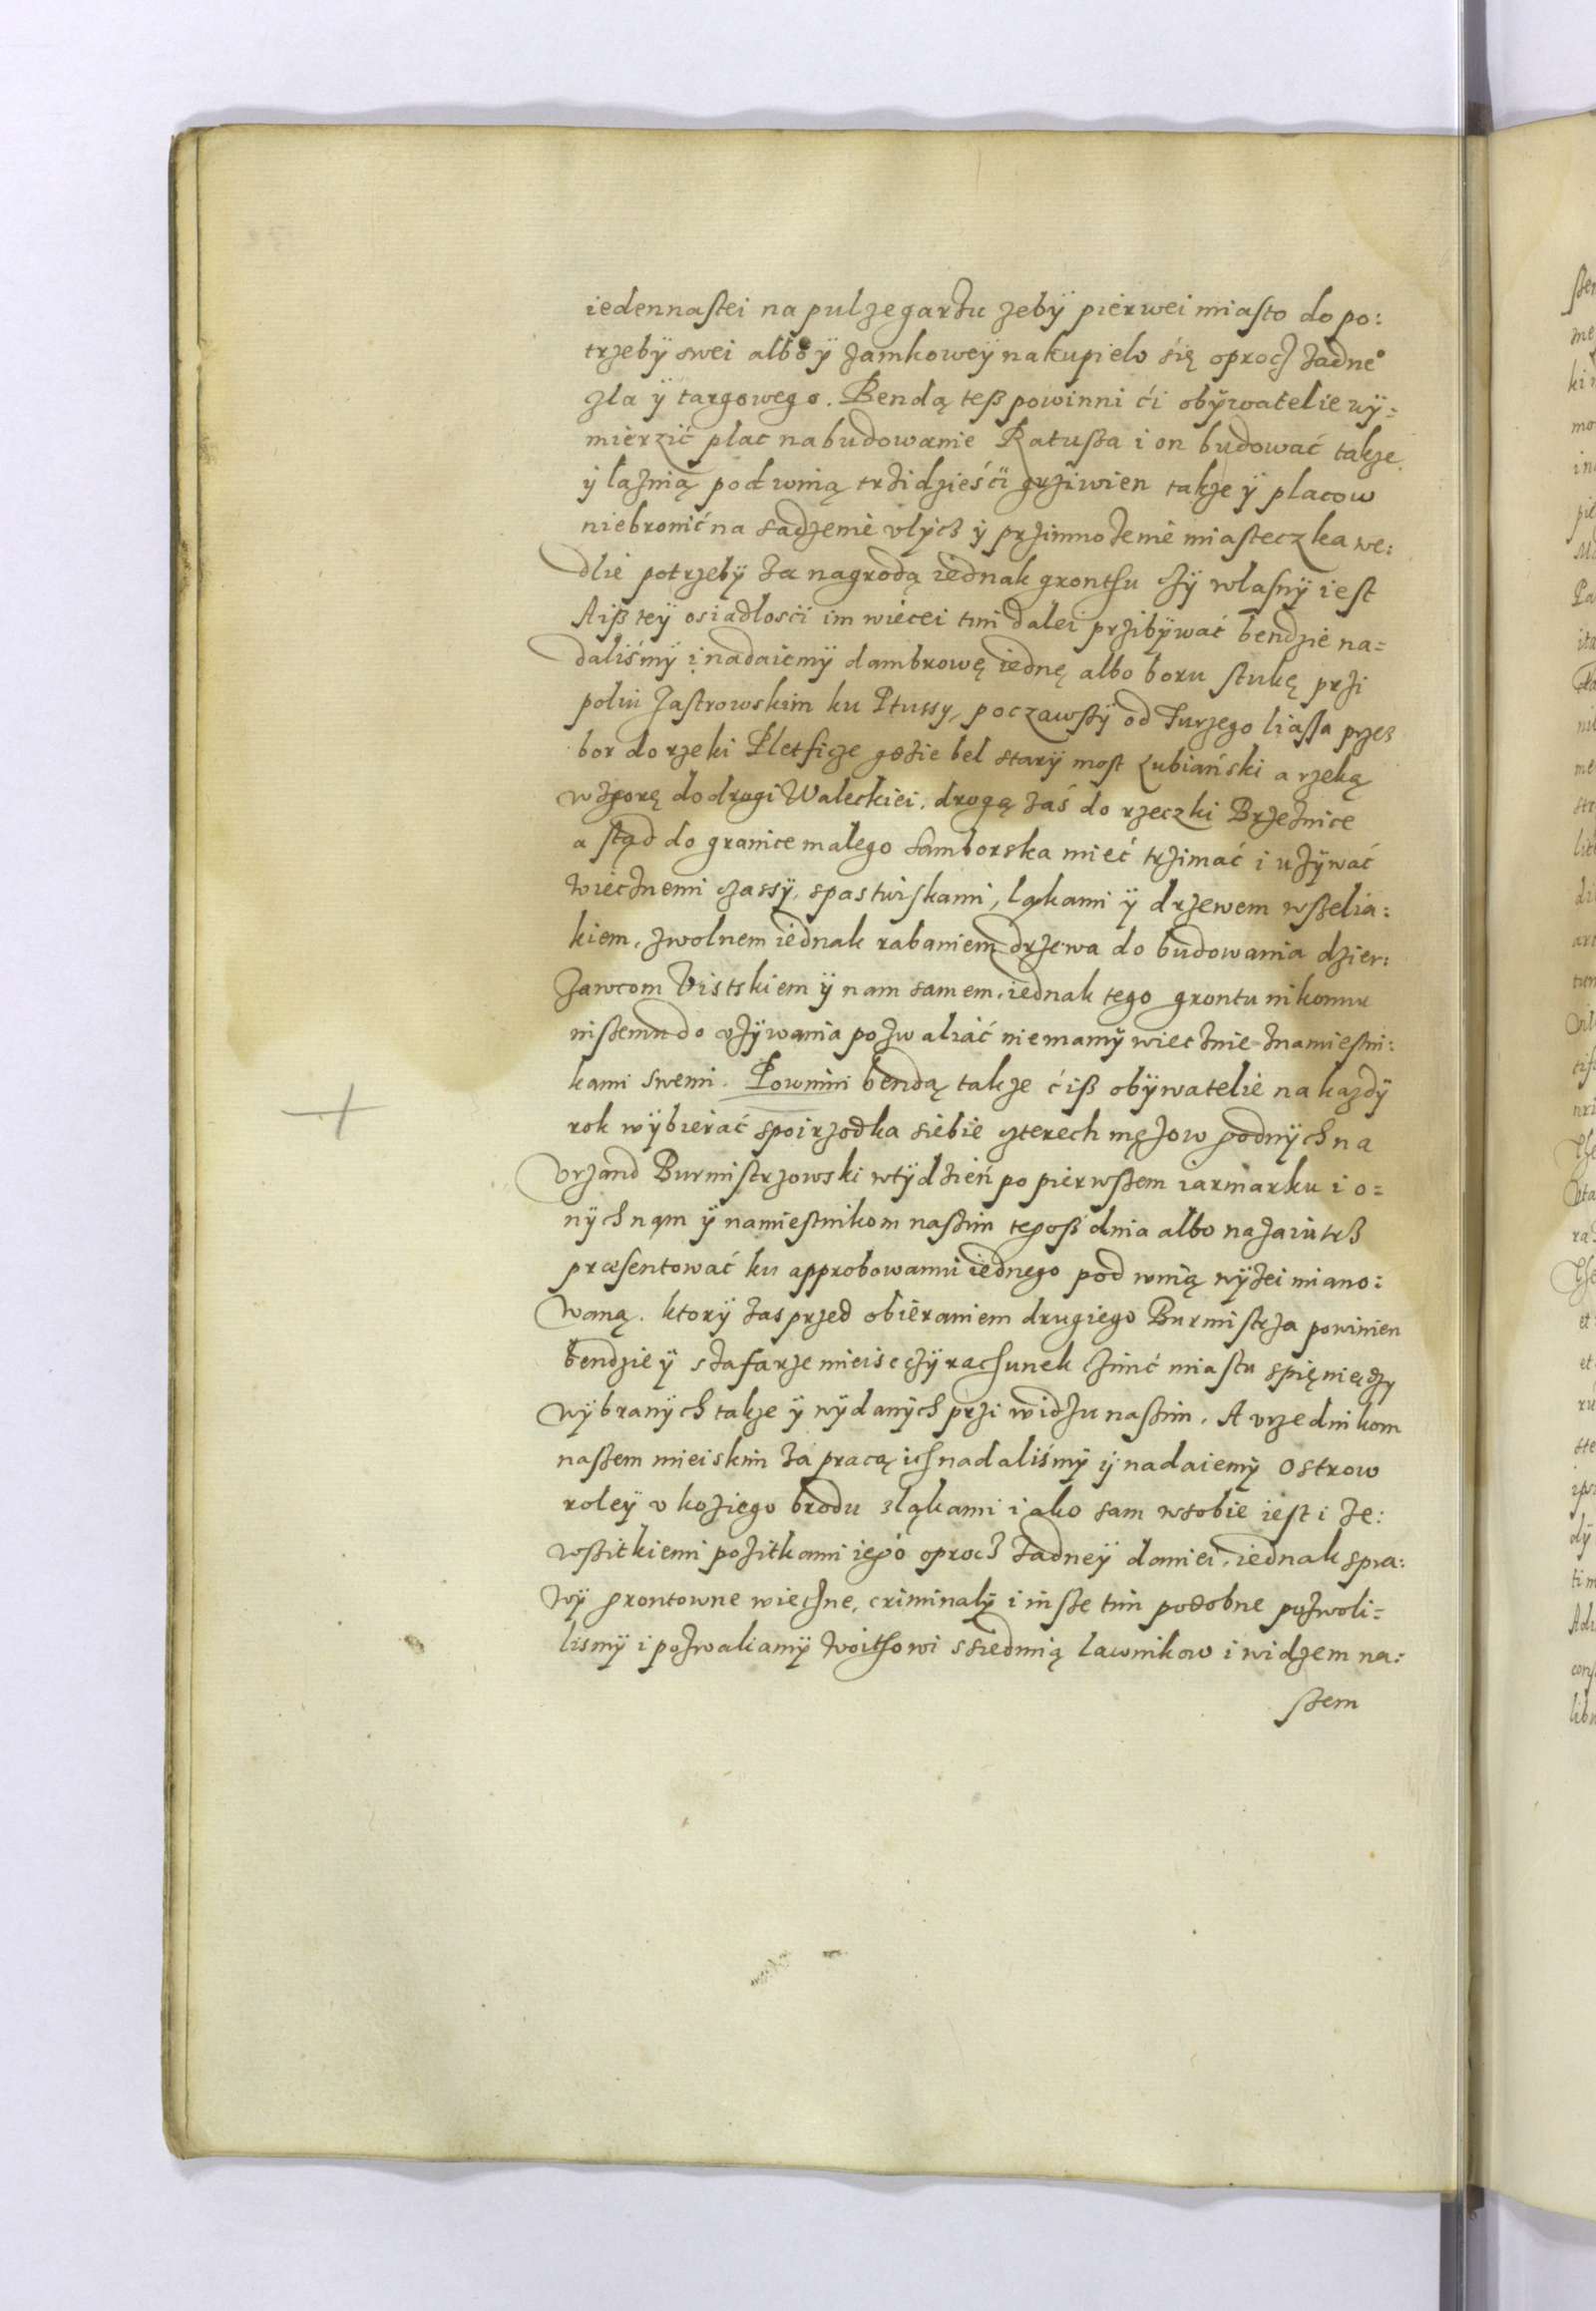 iedennastei na pulzegarzu zebÿ pierwei miasto do po:
trzebÿ swei albo ÿ zamkoweÿ nakupielo się oprocz żadne°
zla ÿ targowego. Bendą teß powinni ći obÿwatelie wÿ:
mierzić plac na budowanie Ratußa i on budować takze
ÿ laznią pod winą trzidzieśći grziwien takze ÿ placow
niebronić na sadzenie ulÿcz ÿ przimnozenie miasteczka we:
dlie potrzebÿ za nagrodą iednak gronthu czÿ wlasnÿ iest
Aiß teÿ osiadlosci im wiecei tim dalei przibÿwać bendzie na=
daliśmÿ i nadaiemÿ dambrowę iednę albo boru stukę przi
poliu Jastrowskim ku Ptussy, poczawßÿ od Turzego liassa przez
bor do rzeki Pletficze gdzie bel starÿ most Lubiański a rzeką
wzgorę do drogi Waleckiei, drogą zaś do rzeczki Brzeznice
a stąd do granice malego Samborska mieć trzimać i uzÿwać
wiecznemi czassÿ, spastwiskami, ląkami ÿ drzewem wßelia:
kiem, zwolnem iednak rabaniem drzewa do budowania dzier:
zawcom Uistskiem ÿ nam samem, iednak tego grontu nikomu
inßemu do uzÿwania pozwaliać niemamÿ wiecznie znamiestni:
kami swemi. Powinni bendą takze ciß obÿwatelie na kazdÿ
rok wÿbierać spoirzodka siebie czterech męzow godnÿch na
Urzand Burmistrzowski wtÿdzień po pierwßem iarmarku i o=
nÿch nąm ÿ namiestnikom naßim tegoß dnia albo nazaiutrz
præsentować ku approbowaniu iednego pod winą wÿzei miano:
waną. ktorÿ zas przed obieraniem drugiego Burmistrza powinien
bendzie ÿ szafarze mieiscczÿ rachunek zinić miastu spięniędzy
wÿbranÿch takze ÿ wÿdanÿch przi widzu naßim. A urzednikom
naßem mieiskim za pracą ich nadaliśmÿ ÿ nadaiemÿ Ostrow
roleÿ u koziego brodu zląkami iako sam wsobie iest i ze:
wßitkiemi pozitkami iego oprocz żadneÿ daniei, iednak spra:
wÿ grontowne wieczne, criminalÿ i inße tim podobne pozwoli=
lismÿ i pozwaliamÿ woithowi ssiedmią lawnikow i widzem na:
ßem